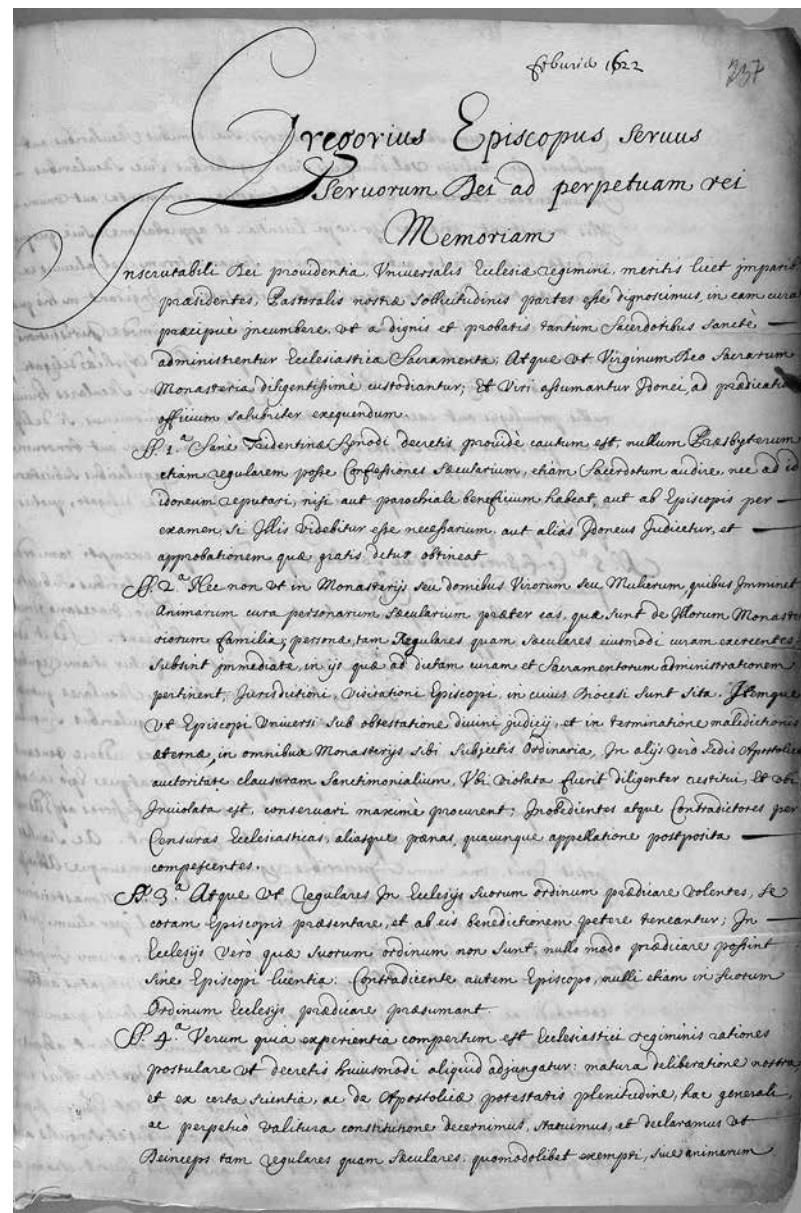 februrio 1622
337
Gregorius Episcopus servus
Servorum Dei ad perpetuam rei
Memoriam
Inscrutabili Dei providentia, Universalis Ecclesiæ regimini, meritis licet imparib
præsidentes, Pastoralis nostræ sollicitudinis partes esse dignoscimus, in eam cura
præcipuè incumbere, vt a dignis et probatis tantum Sacerdotibus Sanctè
administrentur Ecclesiastica Sacramenta; Atque vt Virginum Deo Sacratarum
Monasteria diligentissimè custodiantur; Et Viri assumantur Idonei, ad prædicatio
officium salubriter exequendum.
§. 1.ª Sanè Tridentinæ Synodi decretis providè cautum est, nullum Præsbyterum
etiam regularem posse Confessiones Sæcularium, etiam Sacerdotum audire, nec ad id
idoneum reputari, nisi aut parochiale beneficium habeat, aut ab Episcopis per
examen, si Illis videbitur esse necessarium, aut alias Idoneus Iudicetur, et
approbationem quæ gratis detur obtineat
§. 2.ª Nec non vt in Monasterijs seu domibus Virorum seu Mulierum, quibus Imminet
Animarum cura personarum sæcularium præter eas, quæ sunt de Illorum Monaste
riorum familia; personæ, tam Regulares quam sæculares eiusmodi curam exercentes
Subsint immediate, in ijs quæ ad dictam curam et Sacramentorum administrationem
pertinent, Iurisdictioni, visitationi Episcopi, in cuius Diocesi sunt sita. Itemque
vt Episcopi Universi sub obtestatione divini judicij, et in terminatione maledictionis
æternæ, in omnibus Monasterijs sibi Subjectis Ordinaria, In alijs verò Sedis Apostolicæ
auctoritate clausuram Sanctimonialium, Vbi violata fuerit diligenter restitui, Et vbi
Inviolata est, conservari maximè procurent; Inobedientes atque Contradictores per
Censuras Ecclesiasticas, aliasque pænas, quacunque appellatione postposita
compescentes.
§. 3.ª Atque vt regulares In Ecclesijs suorum ordinum prædicare volentes, se
coram Episcopis præsentare, et ab eis benedictionem petere teneantur; In
Ecclesijs verò quæ suorum ordinum non sunt, nullo modo prædicare possint
sine Episcopi licentia: Contradicente autem Episcopo, nulli etiam in suorum
Ordinum Ecclesijs prædicare præsumant.
§. 4.ª Verum quia experientia compertum est Ecclesiastici regiminis rationes
postulare vt decretis huiusmodi aliquid adjungatur: matura deliberatione nostra
et ex certa scientia, ac de Apostolicæ potestatis plenitudine, hac generali,
ac perpetuò valitura constitutione decernimus, statuimus, ac declaramus vt
Deinceps tam regulares quam sæculares, quomodolibet exempti, sive animarum